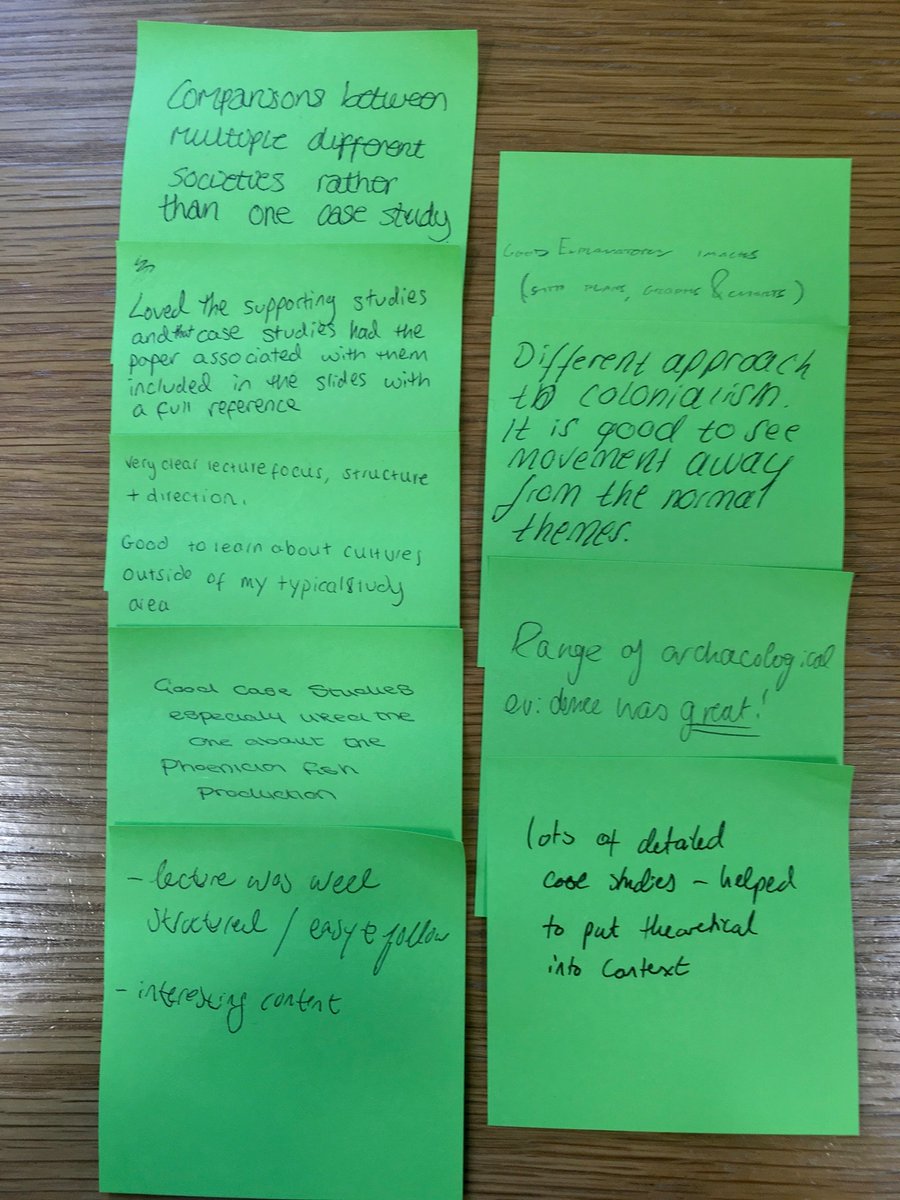 Comparisons between
multiple different
societies rather
than one case study
Loved the supporting studies
and that case studies had the
paper associated with them
included in the slides with
a full reference
very clear lecture focus, structure
+ direction.
Good to learn about cultures
outside of my typical study
area
Good case studies
especially liked the
one about the
Phoenician fish
production
- lecture was well
structured / easy to follow
- interesting content
Good Explanatory images
(site plans, graphs & charts)
Different approach
to colonialism.
It is good to see
movement away
from the normal
themes.
Range of archaeological
evidence was great!
lots of detailed
case studies - helped
to put theoretical
into context